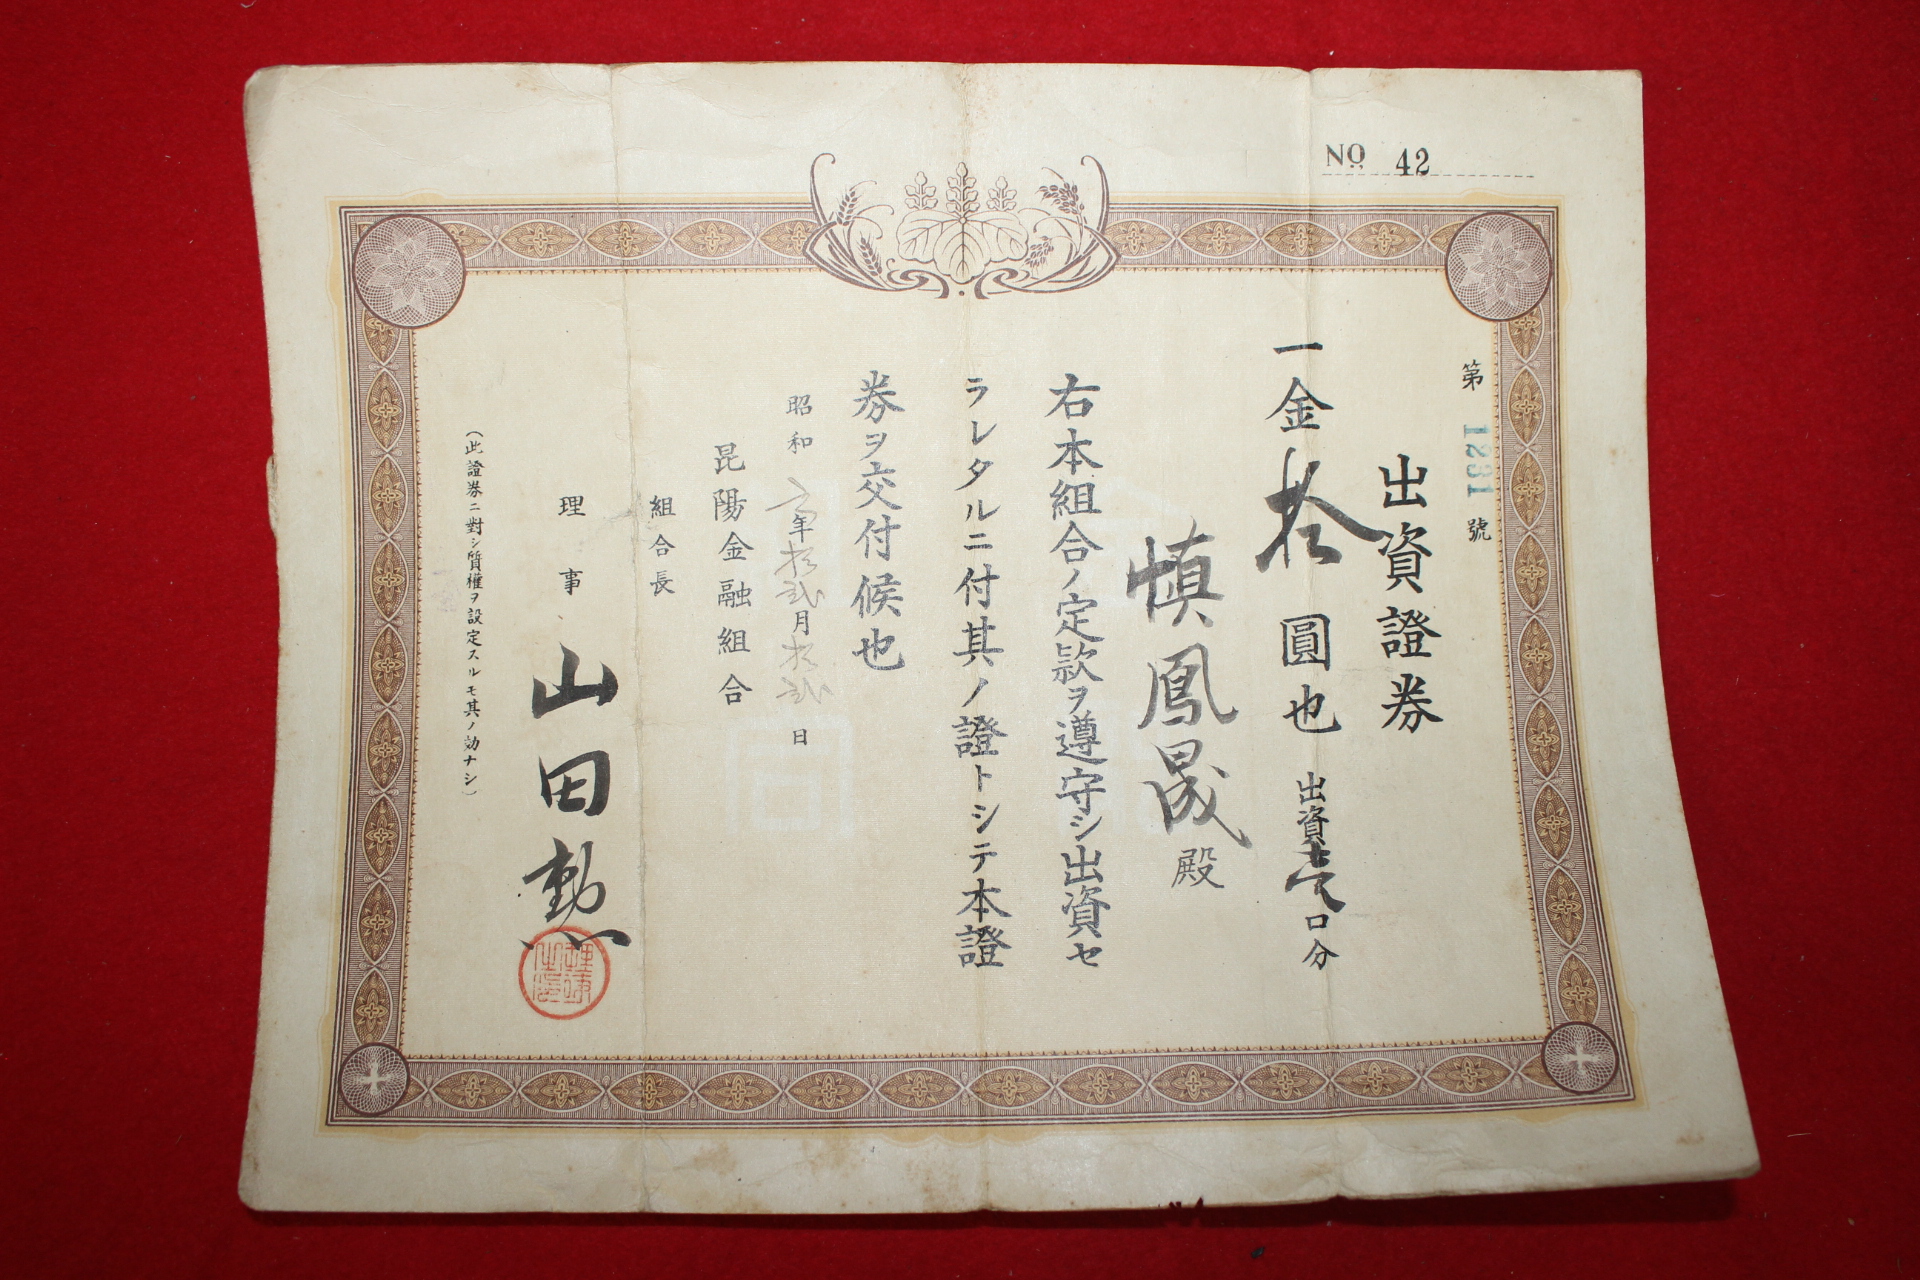 NO 42
第1231號
出資證券
一金拾圓也 出資壹口分
慎鳳晟殿
右本組合ノ定款ヲ遵守シ出資セ
ラレタルニ付其ノ證トシテ本證
券ヲ交付候也
昭和 年拾弍月拾弍日
昆陽金融組合
組合長
理事 山田勲
(此證券ニ對シ質權ヲ設定スルモ其ノ効ナシ)